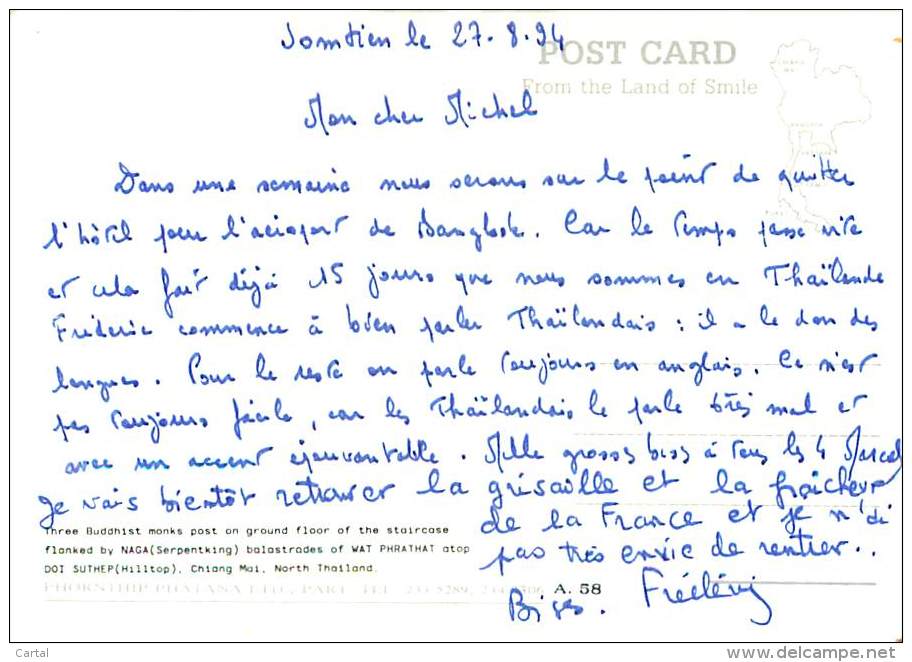 Jomtien le 27.8.94
POST CARD
From the Land of Smile
Mon cher Michel
Dans une semaine nous serons sur le point de quitter
l'hôtel pour l'aéroport de Bangkok. Car le temps passe vite
et cela fait déjà 15 jours que nous sommes en Thaïlande
Frédéric commence à bien parler Thaïlandais : il a le don des
langues. Pour le reste on parle toujours en anglais. Ce n'est
pas toujours facile, car les Thaïlandais le parle très mal et
avec un accent épouvantable. Mille grosses bises à tous les 4 Marcel
Je vais bientôt retrouver la grisaille et la fraîcheur
de la France et je n'ai
pas très envie de rentrer..
Bises. Frédéric
Three Buddhist monks post on ground floor of the staircase
flanked by NAGA(Serpentking) balastrades of WAT PHRATHAT atop
DOI SUTHEP(Hilltop), Chiang Mai, North Thailand.
A. 58
Cartal
www.delcampe.net